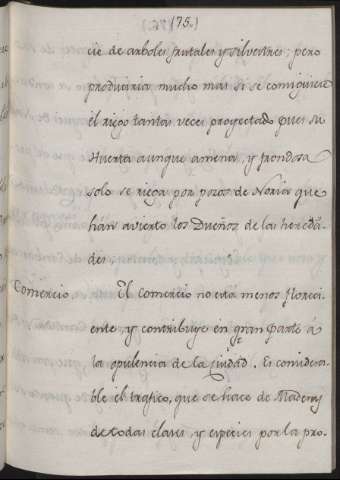 (75.)
cie de arboles frutales y silvestres; pero
produciria mucho mas si se consiguiera
el riego tantas veces proyectado pues su
Huerta aunque amena, y frondosa
solo se riega por pozos de Noria que
han avierto los Dueños de las hereda-
des.
Comercio. El comercio no está menos floreci-
ente, y contribuye en gran parte á
la opulencia de la Ciudad. Es considera-
ble el trafico, que se hace de Maderas
de todas clases, y especies por la pro-